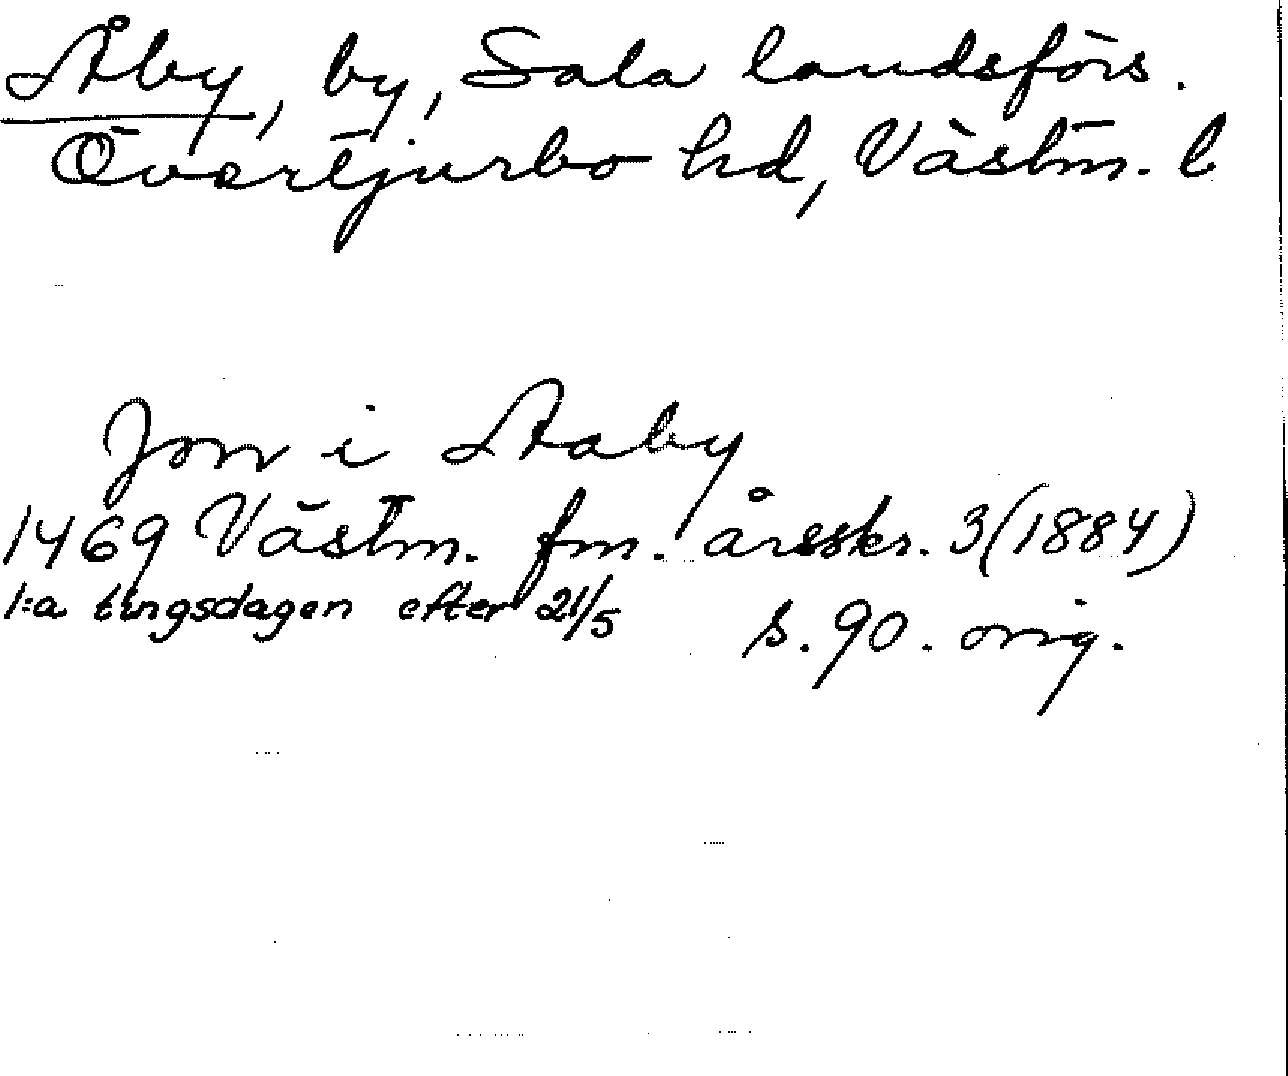 Åby, by, Sala landsförs.
Övertjurbo hd, Västm. l
Jon i Aaby
1469 Västm. fm. årsskr. 3(1884)
1:a tingsdagen efter 21/5 s. 90. orig.